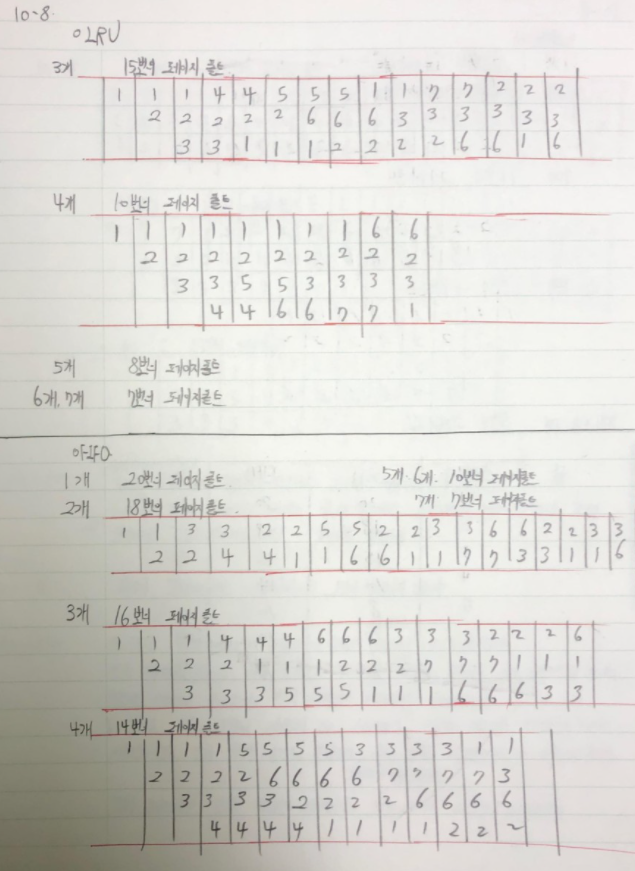 10-8.
○ LRU
3개 15번의 페이지 폴트
1 1 1 4 4 5 5 5 1 1 7 7 2 2 2
2 2 2 2 2 6 6 6 3 3 3 3 3 3
3 3 1 1 1 2 2 2 2 6 6 1 6
4개 10번의 페이지 폴트
1 1 1 1 1 1 1 1 6 6
2 2 2 2 2 2 2 2 2
3 3 5 5 3 3 3 3
4 4 6 6 7 7 1
5개 8번의 페이지폴트
6개, 7개 7번의 페이지폴트
○ FIFO.
1개 20번의 페이지폴트 5개. 6개. 10번의 페이지폴트
2개 18번의 페이지폴트. 7개 7번의 페이지폴트
1 1 3 3 2 2 5 5 2 2 3 3 6 6 2 2 3 3
2 2 4 4 1 1 6 6 1 1 7 7 3 3 1 1 6
3개 16번의 페이지폴트
1 1 1 4 4 4 6 6 6 3 3 3 2 2 2 6
2 2 2 1 1 1 2 2 2 7 7 7 1 1 1
3 3 3 5 5 5 1 1 1 6 6 6 3 3
4개 14번의 페이지폴트
1 1 1 1 5 5 5 5 3 3 3 3 1 1
2 2 2 2 6 6 6 6 7 7 7 7 3
3 3 3 3 2 2 2 2 6 6 6 6
4 4 4 4 1 1 1 1 2 2 2